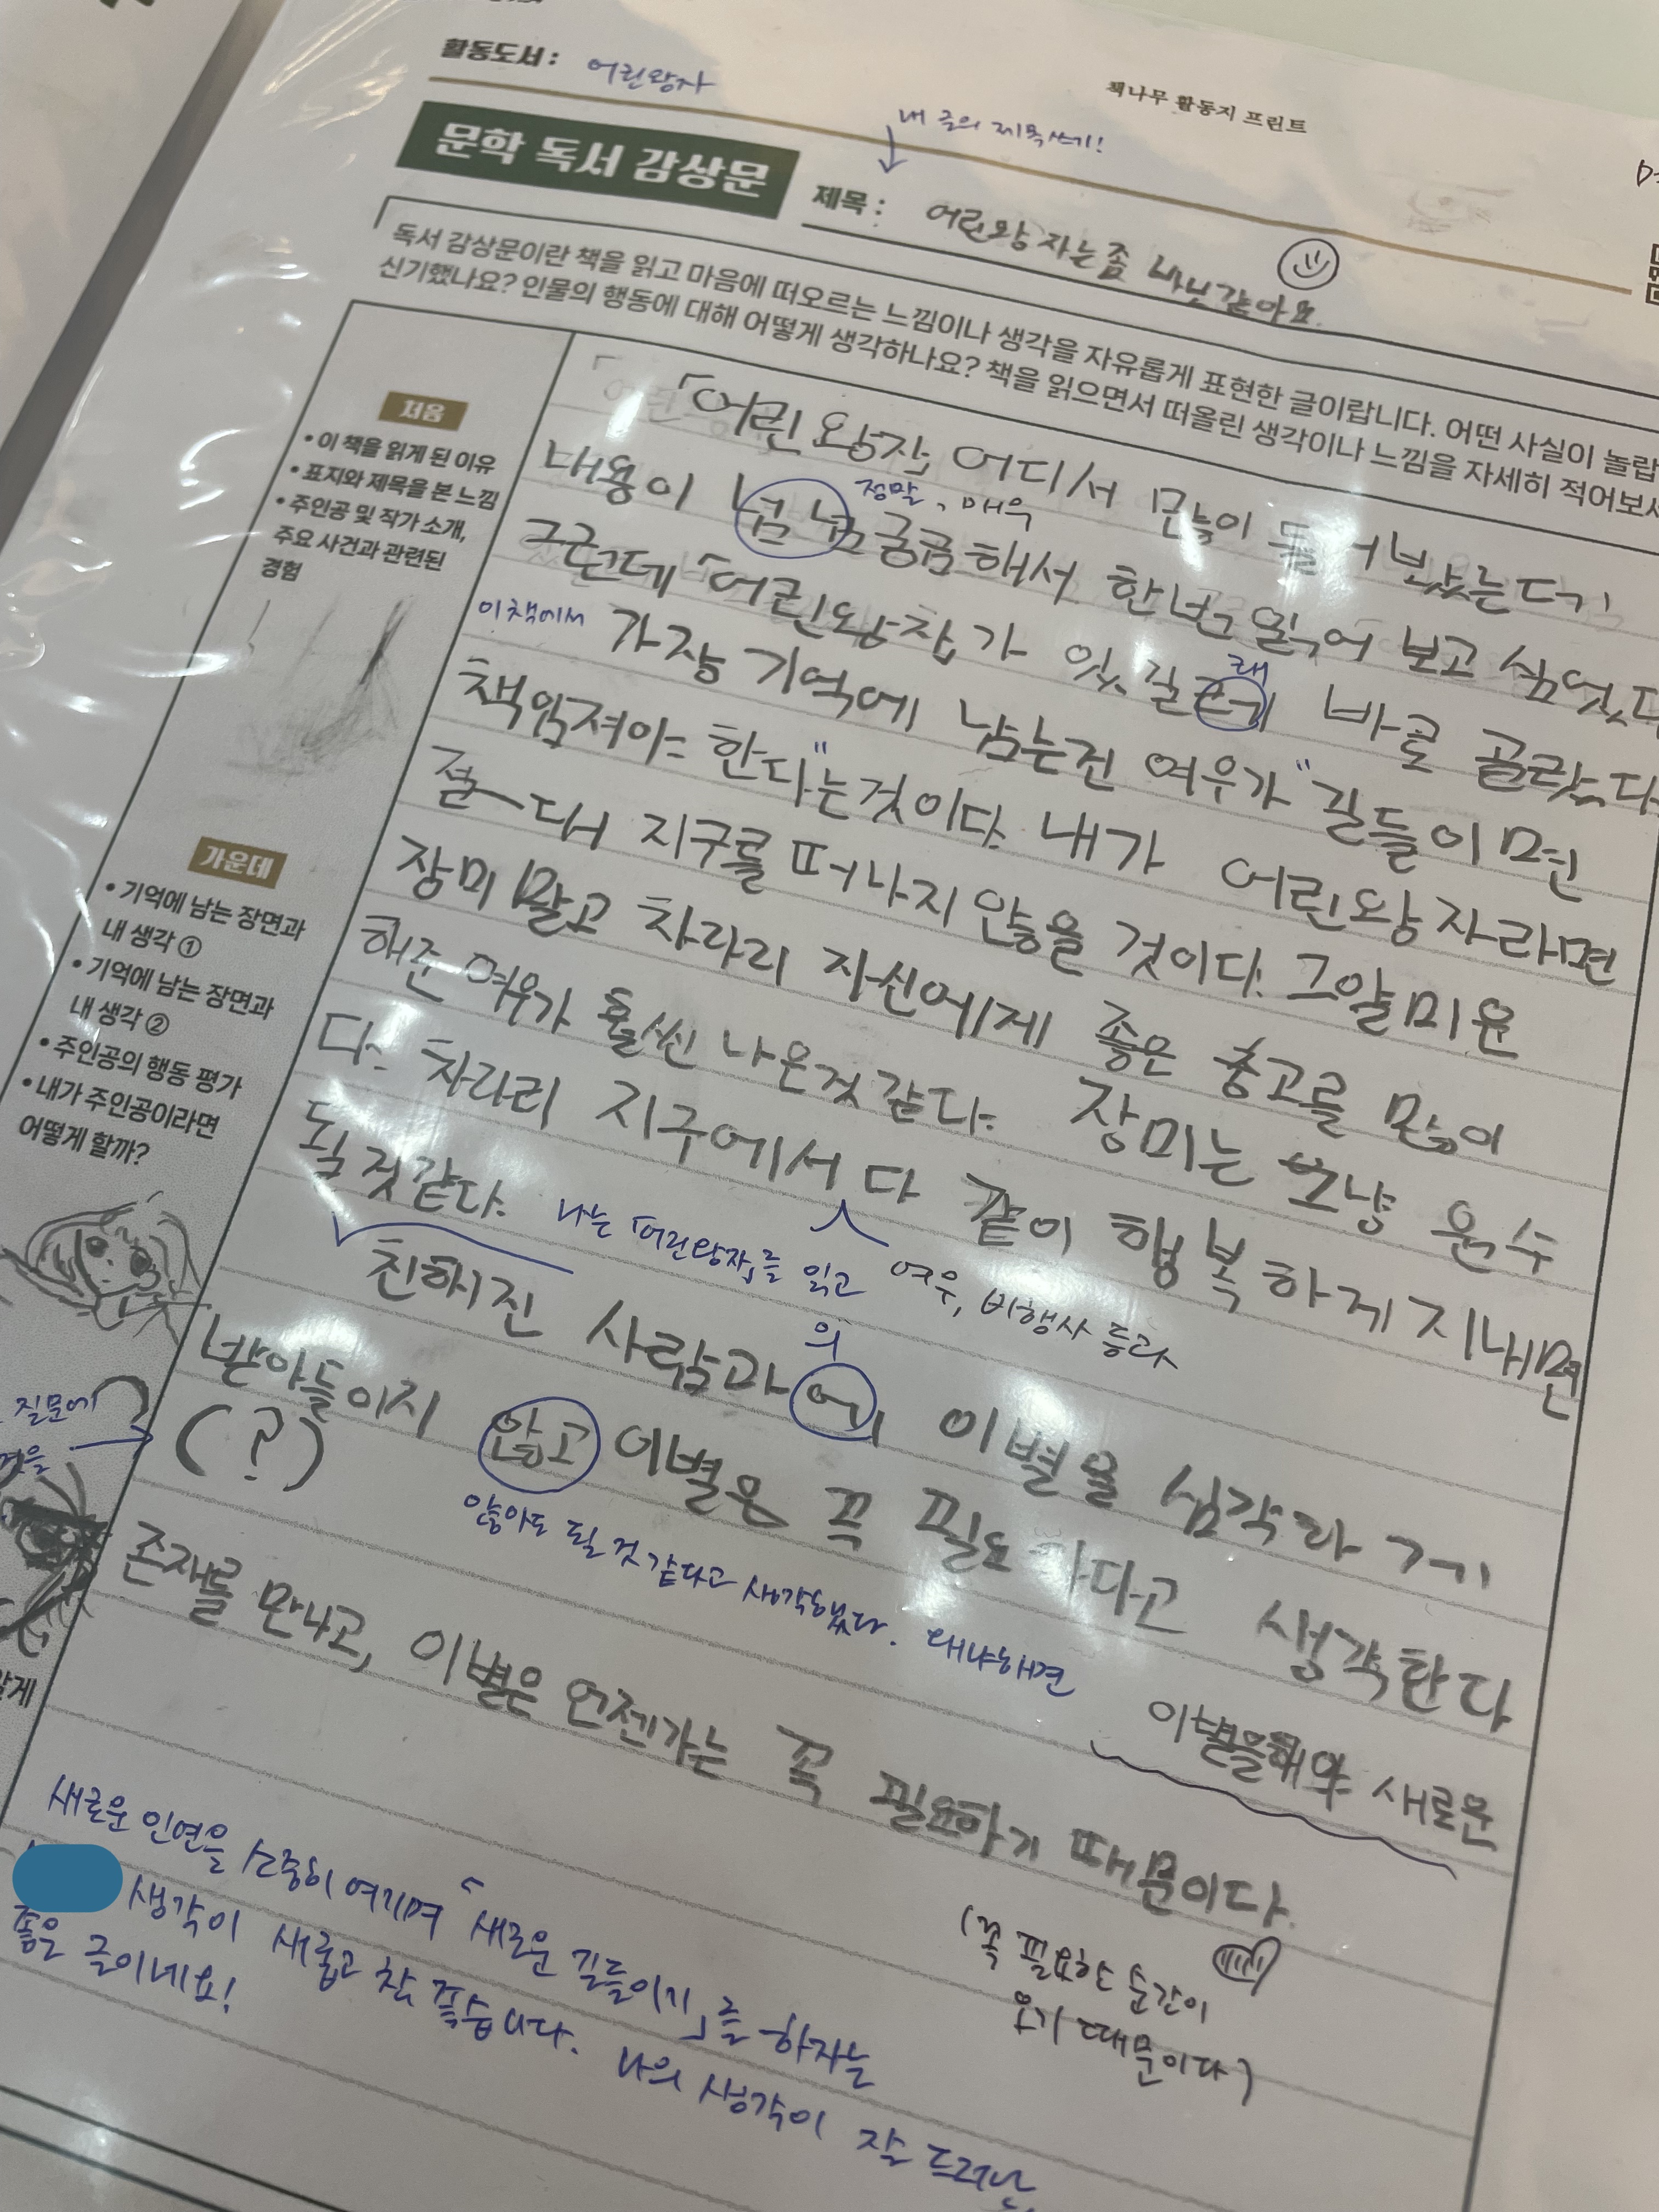 활동도서 : 어린왕자
책나무 활동지 프린트
내 글의 제목쓰기!
문학 독서 감상문
제목 : 어린왕자는좀 바보같아요.
독서 감상문이란 책을 읽고 마음에 떠오르는 느낌이나 생각을 자유롭게 표현한 글이랍니다. 어떤 사실이 놀랍
신기했나요? 인물의 행동에 대해 어떻게 생각하나요? 책을 읽으면서 떠올린 생각이나 느낌을 자세히 적어보세
처음
• 이 책을 읽게 된 이유
• 표지와 제목을 본 느낌
• 주인공 및 작가 소개,
주요 사건과 관련된
경험
「어린왕자」 어디서 많이 들어봤는데
정말, 매우
내용이 넘 넘궁금해서 한번 읽어 보고 싶었다
근데「어린왕자」가 있길레 바로 골랐다.
래
이책에서 가장 기억에 남는건 여우가 "길들이면
책임져야 한다"는것이다. 내가 어린왕자라면
절~대 지구를 떠나지 않을 것이다. 그얄미운
장미말고 차라리 자신에게 좋은 충고를 많이
해준 여우가 훨씬 나은것 같다. 장미는 그냥 원수
다. 차라리 지구에서 다 같이 행복하게 지내면
여우, 비행사 등과
될것같다.
나는 「어린왕자」를 읽고
가운데
• 기억에 남는 장면과
내 생각 ①
• 기억에 남는 장면과
내 생각 ②
• 주인공의 행동 평가
• 내가 주인공이라면
어떻게 할까?
의
친해진 사람과에 이별을 심각하게
받아들이지 않고 이별은 꼭 필요하다고 생각한다
질문에
(?)
않아도 될 것 같다고 생각했다. 왜냐하면
이별을해야 새로운
존재를 만나고, 이별은 언젠가는 꼭 필요하기 때문이다.
(꼭 필요한 순간이
오기 때문이다)
새로운 인연을 소중히 여기며 「새로운 길들이기」를 하자는
생각이 새롭고 참 좋습니다. 나의 생각이 잘 드러난
좋은 글이네요!